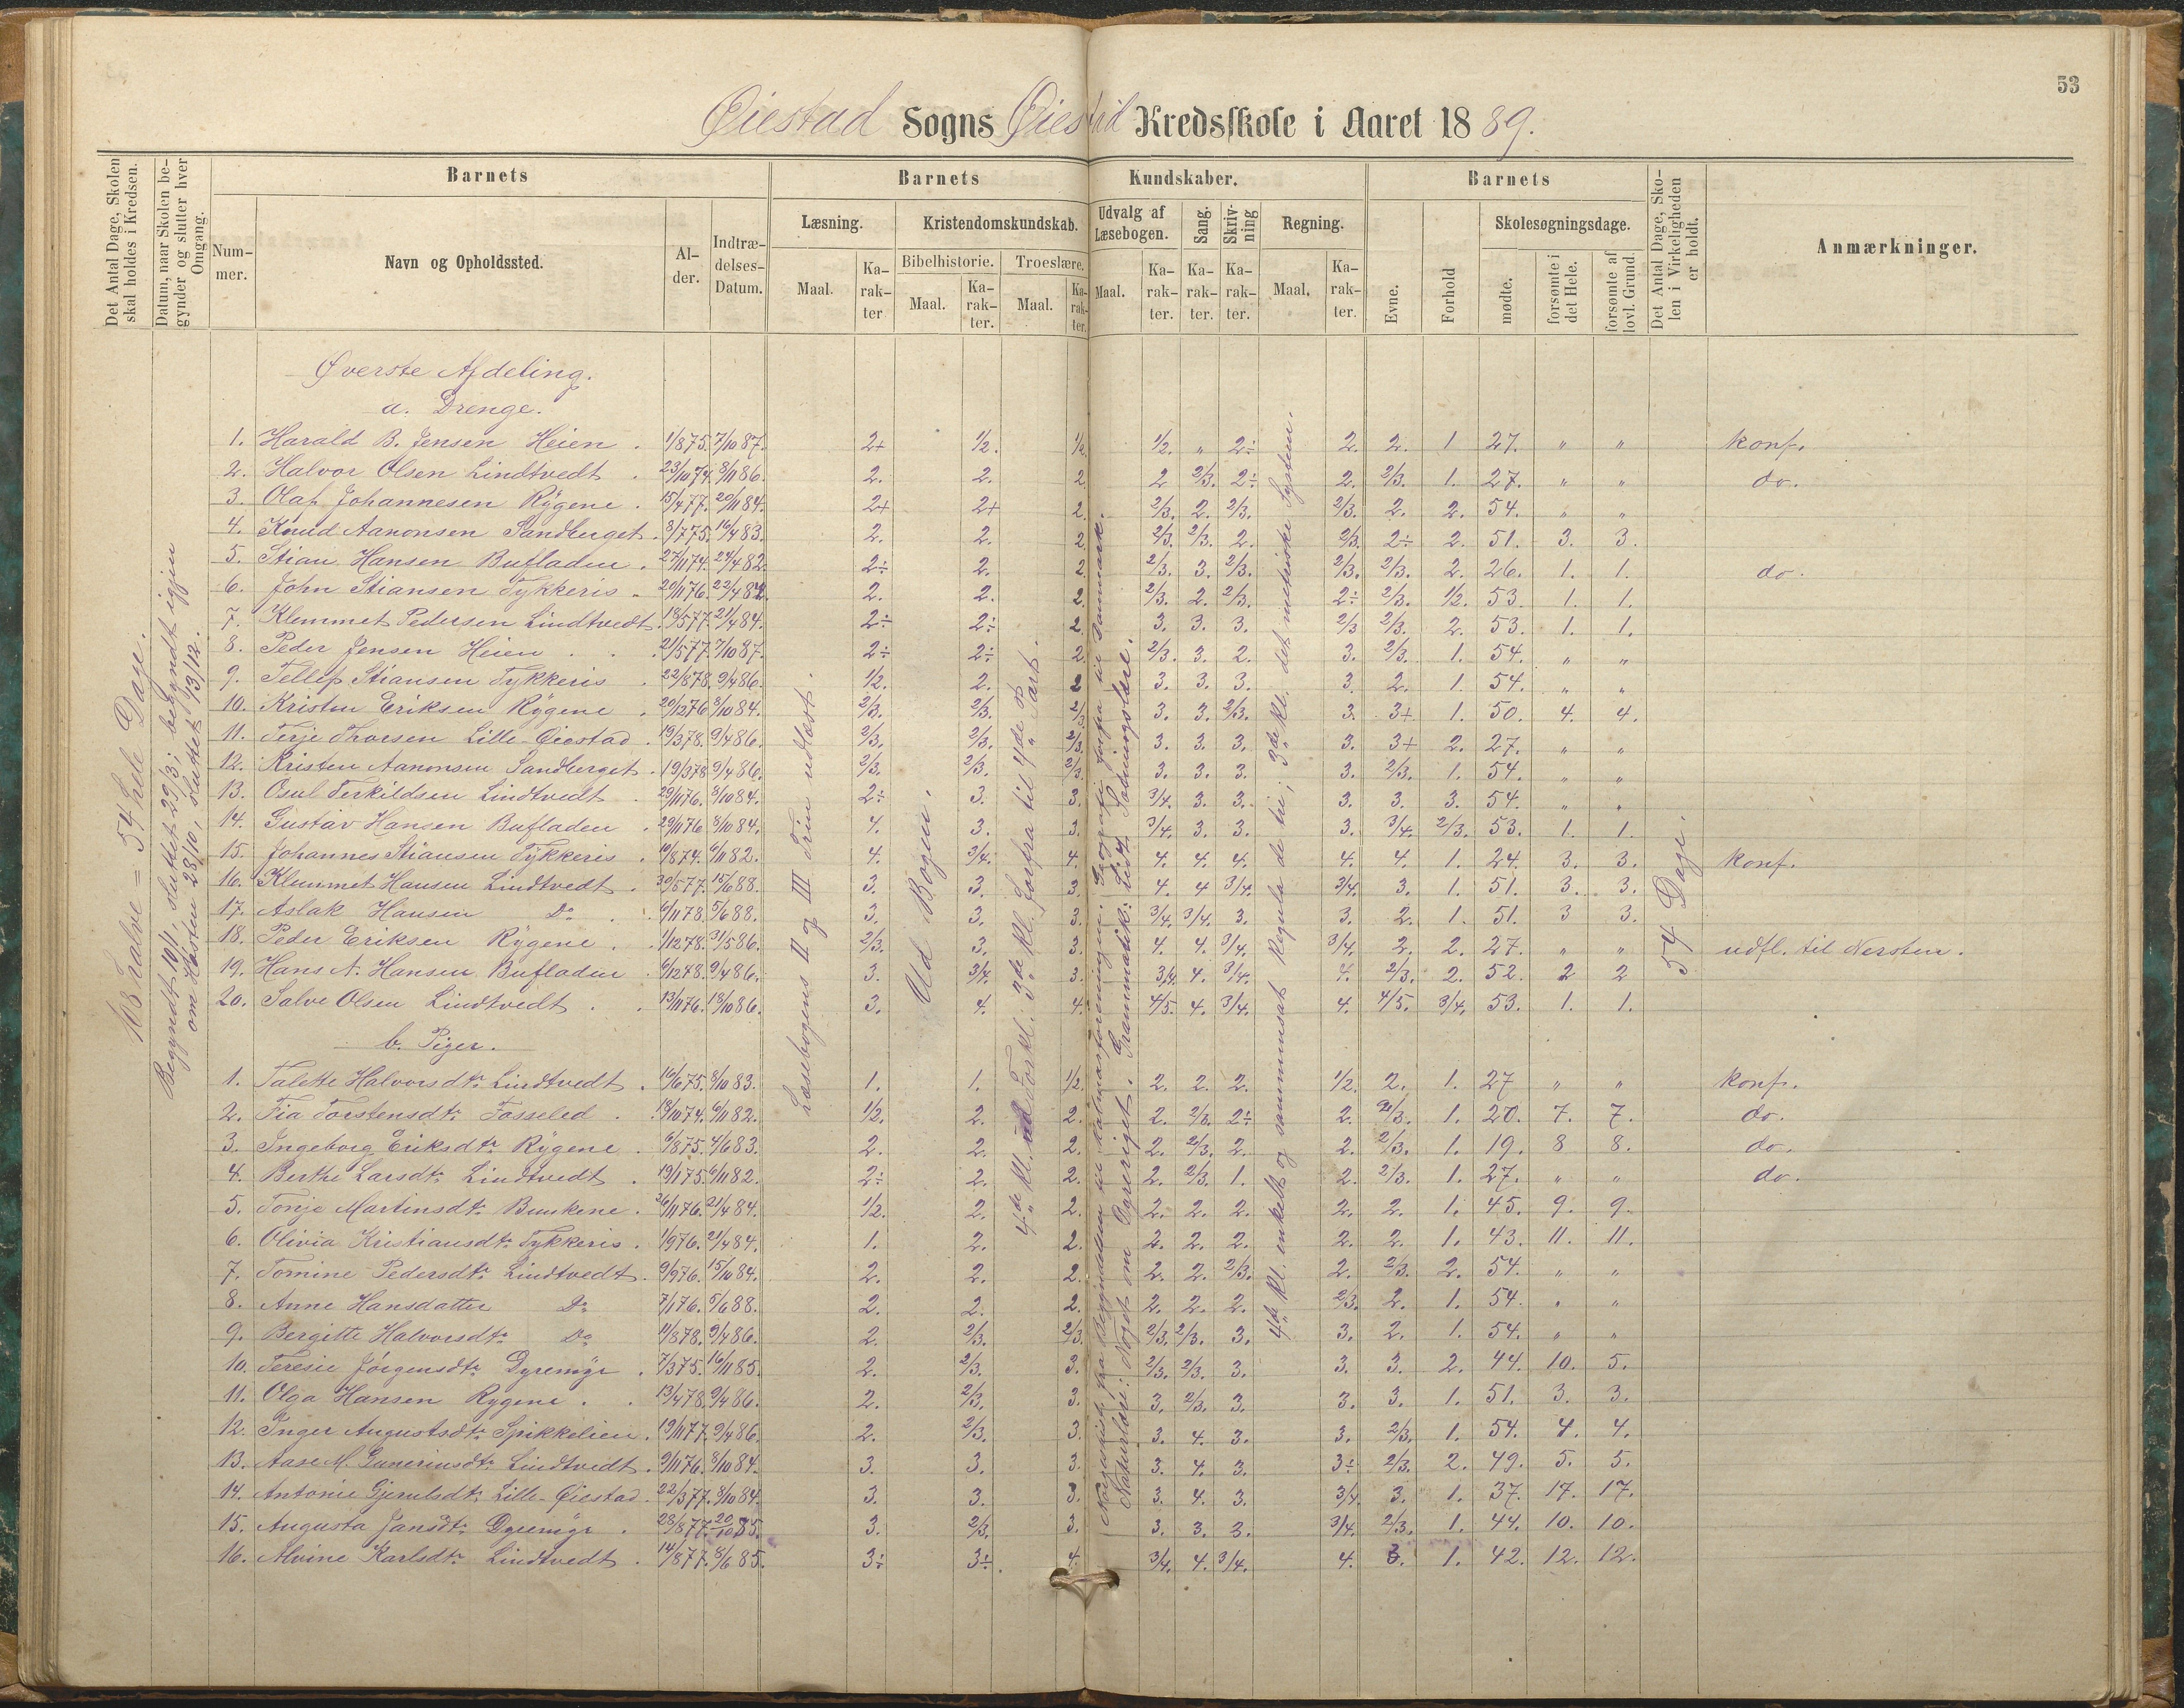 53
Øiestad Sogns Øiestad Kredsskole i Aaret 1889.
Det Antal Dage, Skolen skal holdes i Kredsen.
Datum, naar Skolen begynder og slutter hver Omgang.
Barnets
Nummer.
Navn og Opholdssted.
Alder.
Indtrædelses-Datum.
Barnets Kundskaber.
Læsning.
Maal.
Karakter
Kristendomskundskab.
Bibelhistorie.
Maal.
Karakter.
Troeslære.
Maal.
Karakter.
Udvalg af Læsebogen.
Maal.
Karakter.
Sang.
Karakter.
Skrivning
Karakter.
Regning.
Maal.
Karakter.
Barnets
Evne.
Forhold
Skolesøgningsdage.
mødte.
forsømte i det Hele.
forsømte af lovl. Grund.
Det Antal Dage, Skolen i Virkeligheden er holdt.
Anmærkninger.
108 halve = 54 hele Dage.
Begyndt 10/1, sluttet 29/3; begyndt igjen
om Høsten 28/10, sluttet 13/12.
Læsebogens II og III Trin udlæst.
Ud Bogen.
4de Kl. ud Forkl.; 3de Kl. forfra til 4de Part.
Norgeshist. fra Begyndelsen til Kalmarforeningen. Geografi: forfra til Danmark.
Naturlære: Noget om Dyreriget. Grammatik: Lidt Sætningslære.
4de Kl. enkelt og sammensat Regula de tri; 3de Kl. det metriske System.
54 Dage.
Øverste Afdeling.
a. Drenge.
1. Harald B. Jensen Heien . 1/8 75. 7/10 87. 2+ 1/2. 1/2 1/2. " 2÷ 2. 2. 1 27. " " konf.
2. Halvor Olsen Lindtvedt . 23/10 74. 8/11 86. 2. 2. 2. 2 2/3. 2÷ 2. 2/3. 1. 27. " " do.
3. Olaf Johannesen Rÿgene . 15/4 77. 20/11 84. 2+ 2+ 2. 2/3. 2. 2/3. 2/3. 2. 2. 54. " "
4. Knud Aanonsen Sandberget . 3/7 75. 16/4 83. 2. 2. 2. 2/3. 2/3. 2. 2/3. 2÷ 2. 51. 3. 3.
5. Stian Hansen Bufladen . 27/11 74. 24/4 82. 2÷ 2. 2. 2/3. 3. 2/3. 2/3. 2/3. 2. 26. 1. 1. do.
6. John Stiansen Tykkeris . 20/11 76. 22/4 84. 2. 2. 2. 2/3. 2. 2/3. 2÷ 2/3. 1/2. 53. 1. 1.
7. Klemmet Pedersen Lindtvedt . 13/5 77. 21/4 84. 2÷ 2÷ 2 3. 3. 3. 2/3 2/3. 2. 53. 1. 1.
8. Peder Jensen Heien . . 21/5 77. 7/10 87. 2÷ 2÷ 2. 2/3. 3. 2. 3. 2/3. 1. 54. " "
9. Tellef Stiansen Tykkeris . 22/8 78. 9/4 86. 1/2. 2. 2 3. 3. 3. 3. 2. 1. 54. " "
10. Kristen Eriksen Rÿgene . 20/12 76. 8/10 84. 2/3. 2/3. 2/3 3. 3. 2/3. 3. 3+ 1. 50. 4. 4.
11. Terje Thorsen Lille-Øiestad . 19/3 78. 9/4 86. 2/3. 2/3. 2/3 3. 3. 3. 3. 3+ 2. 27. " "
12. Kristen Aanonsen Sandberget . 19/3 78. 9/4 86. 2/3. 2/3. 2/3 3. 3. 3. 3. 2/3. 1. 54. " "
13. Osul Terkildsen Lindtvedt . 29/11 76. 8/10 84. 2÷ 3. 3. 3/4. 3. 3. 3. 3. 3. 54. " "
14. Gustav Hansen Bufladen . 29/11 76. 8/10 84. 4. 3. 3. 3/4. 3. 3. 3. 3/4. 2/3. 53. 1. 1.
15. Johannes Stiansen Tÿkkeris . 10/8 74. 6/11 82. 4. 3/4. 4. 4. 4. 4. 4. 4. 1. 24. 3. 3. konf.
16. Klemmet Hansen Lindtvedt . 30/5 77. 15/6 88. 3. 3. 3. 4. 4 3/4. 3/4. 3. 1. 51. 3. 3.
17. Aslak Hansen Do . 6/11 78. 5/6 88. 3. 3. 3. 3/4. 3/4. 3. 3. 2. 1. 51. 3 3.
18. Peder Eriksen Rÿgene . 1/12 78. 31/5 86. 2/3. 3. 3. 4. 4. 3/4. 3/4. 2. 2. 27. " " udfl. til Nersten.
19. Hans A. Hansen Bufladen . 6/12 78. 9/4 86. 3. 3/4. 3. 3/4. 4. 3/4. 4. 2/3. 2. 52. 2 2
20. Salve Olsen Lindtvedt . 13/11 76. 13/10 86. 3. 4. 4. 4/5. 4. 3/4. 4. 4/5. 3/4. 53. 1. 1.
b. Piger.
1. Talette Halvorsdtr. Lindtvedt . 16/6 75. 8/10 83. 1. 1. 1/2. 2. 2. 2. 1/2. 2. 1. 27 " " konf.
2. Tia Torstensdtr. Fosseled . 13/10 74. 6/11 82. 1/2. 2. 2. 2. 2/3. 2÷ 2. 2/3. 1. 20. 7. 7. do.
3. Ingeborg Eriksdtr. Rÿgene . 6/8 75. 4/6 83. 2. 2. 2. 2. 2/3. 2. 2. 2/3. 1. 19. 8 8. do.
4. Berthe Larsdtr. Lindtvedt . 19/1 75. 6/11 82. 2÷ 2. 2. 2. 2/3. 1. 2. 2/3. 1. 27. " " do.
5. Tonje Martinsdtr. Buskene . 26/11 76. 21/4 84. 1/2. 2. 2. 2. 2. 2. 2. 2. 1. 45. 9. 9.
6. Olivia Kristiansdtr. Tykkeris . 1/9 76. 21/4 84. 1. 2. 2. 2. 2. 2. 2. 2. 1. 43. 11. 11.
7. Tomine Pedersdtr. Lindtvedt . 9/9 76. 15/10 84. 2. 2. 2. 2. 2. 2/3. 2. 2/3. 2. 54. " "
8. Anne Hansdatter Do 7/1 76. 5/6 88. 2. 2. 2. 2. 2. 2. 2/3. 2. 1. 54. " "
9. Bergitte Halvorsdtr. Do 11/8 78. 9/4 86. 2. 2/3. 2/3 2/3. 2/3. 3. 3. 2. 1. 54. " "
10. Teresie Jörgensdtr. Dyremÿr . 7/3 75. 16/11 85. 2. 2/3. 3. 2/3. 2/3. 3. 3. 3. 2. 44. 10. 5.
11. Olga Hansen Rygene . . 13/4 78. 9/4 86. 2. 2/3. 3. 3. 2/3. 3. 3. 3. 1. 51. 3. 3.
12. Inger Augustsdtr. Spikkelien . 19/11 77. 9/4 86. 2. 2/3. 3. 3. 4. 3. 3. 2/3. 1. 54. 4. 4.
13. Aase M. Gunerinsdtr. Lindtvedt . 9/11 76. 8/10 84. 3. 3. 3. 3. 4. 3. 3÷ 2/3. 2. 49. 5. 5.
14. Antonie Gjerulsdtr. Lille-Øiestad . 22/3 77. 8/10 84. 3. 3. 3. 3. 4. 3. 3/4. 3. 1. 37. 17. 17.
15. Augusta Jansdtr. Dyremÿr . 28/8 77. 20/10 85. 3. 2/3. 3. 3. 3. 3. 3/4. 2/3. 1. 44. 10. 10.
16. Alvine Karlsdtr. Lindtvedt . 14/8 77. 8/6 85. 3÷ 3÷ 4. 3/4. 4. 3/4. 4. 3. 1. 42. 12. 12.